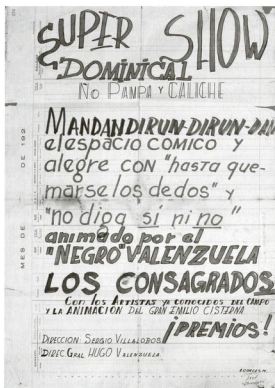 SUPER SHOW
DOMINICAL
ÑO PAMPA Y CALICHE
MANDANDIRUN-DIRUN-DAN
el espacio COMICO Y
alegre CON "hasta que-
marse los dedos" y
"no diga sí ni no"
animado por el
"NEGRO" VALENZUELA
LOS CONSAGRADOS
CON LOS ARTISTAS YA CONOCIDOS DEL CAMPO
Y LA ANIMACION DEL GRAN EMILIO CISTERNA
¡PREMIOS!
DIRECCION: SERGIO VILLALOBOS
DIREC. GRAL HUGO VALENZUELA
MES DE DE 192